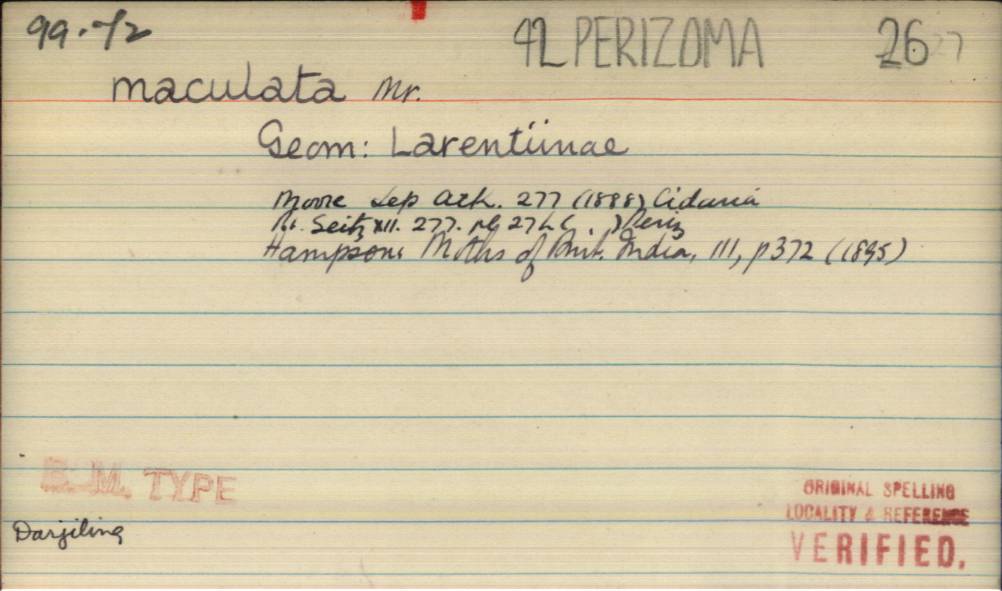 99.-72 42 PERIZOMA 26 27
maculata Mr.
Geom: Larentiinae
Moore Lep Atk. 277 (1888) Cidaria
Seitz XII. 277. pl 27 ) Periz
Hampson: Moths of Brit. India, III, p372 (1895)
B. M. TYPE
Darjiling
ORIGINAL SPELLING
LOCALITY & REFERENCE
VERIFIED.